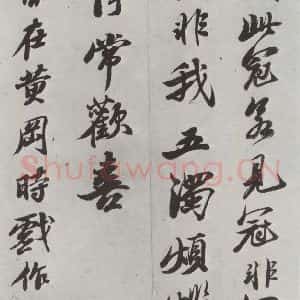 此冠若見冠非
非我五濁煩惱
常歡喜
在黃岡時戲作
Shufawang.CN